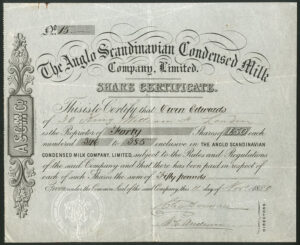 № 15
The Anglo Scandinavian Condensed Milk
Company, Limited.
SHARE CERTIFICATE.
This is to Certify that Owen Edwards
of 30 King William St London
is the Proprietor of Forty Shares of £50 each
numbered 346 to 385 inclusive in THE ANGLO SCANDINAVIAN
CONDENSED MILK COMPANY, LIMITED, subject to the Rules and Regulations
of the said Company and that there has been paid in respect of
each of such Shares the sum of Fifty pounds
Given under the Common Seal of the said Company, this day of Nov 1880
DIRECTORS